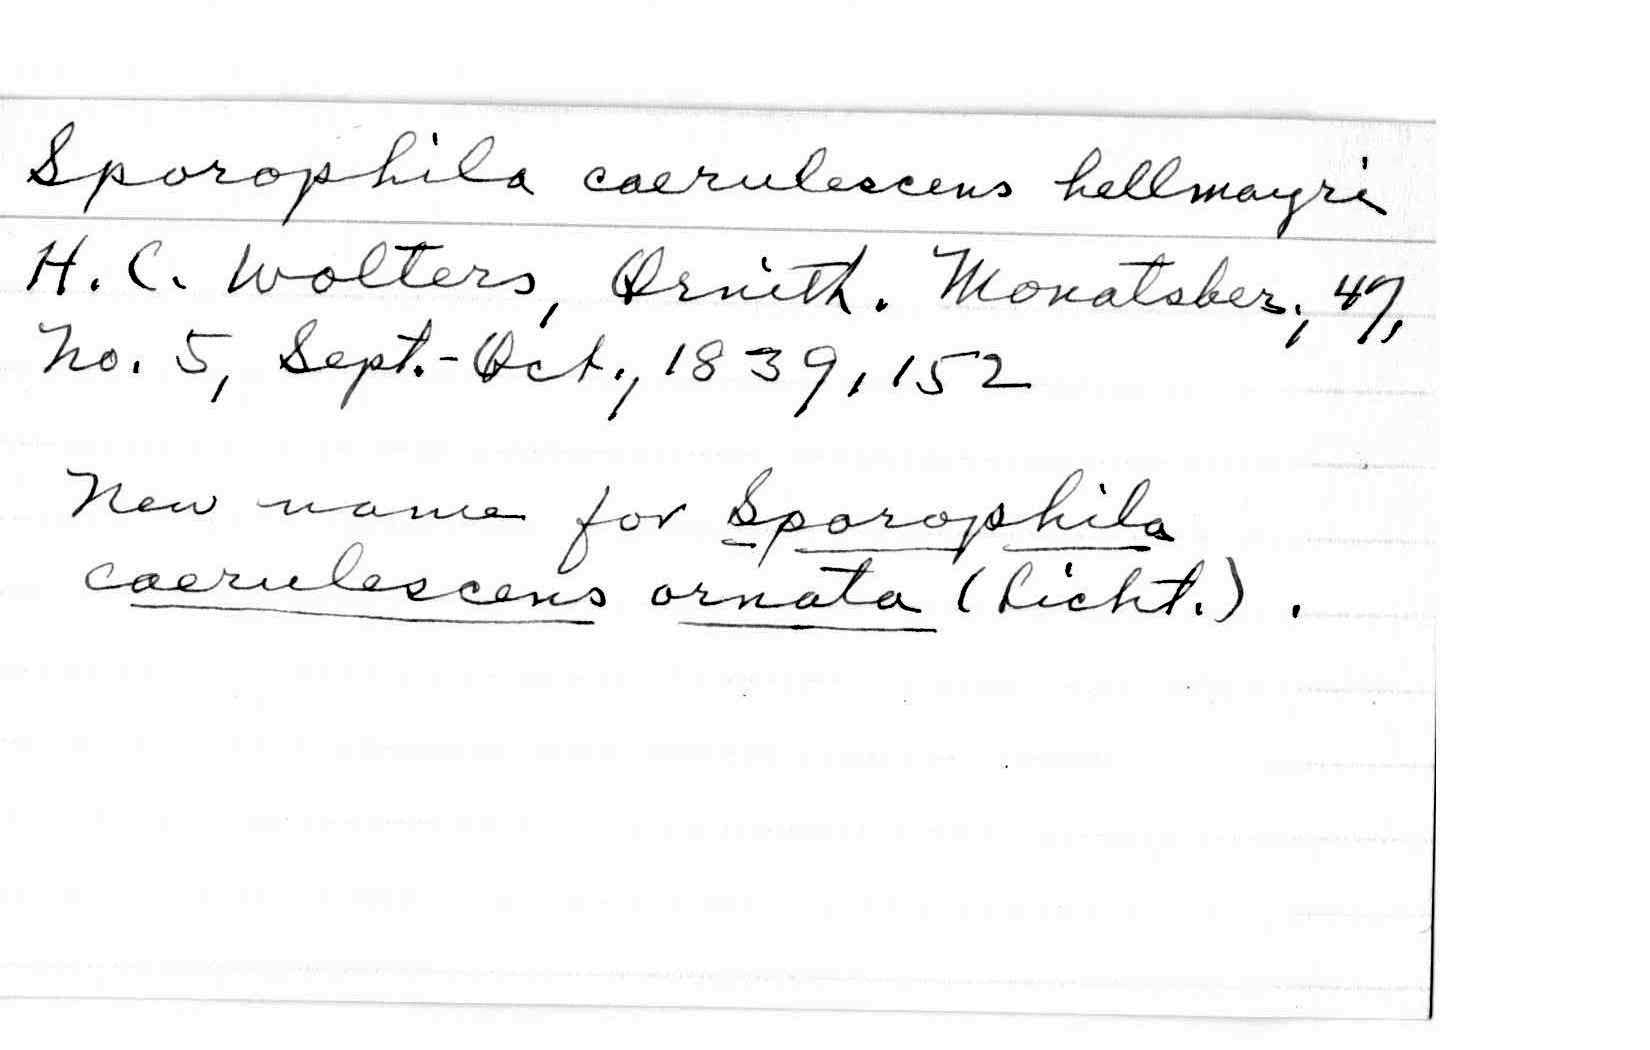 Sporophila caerulescens hellmayri
H. C. Wolters, Ornith. Monatsber., 47,
No. 5, Sept.-Oct., 1839, 152
New name for Sporophila
caerulescens ornata (Licht.).